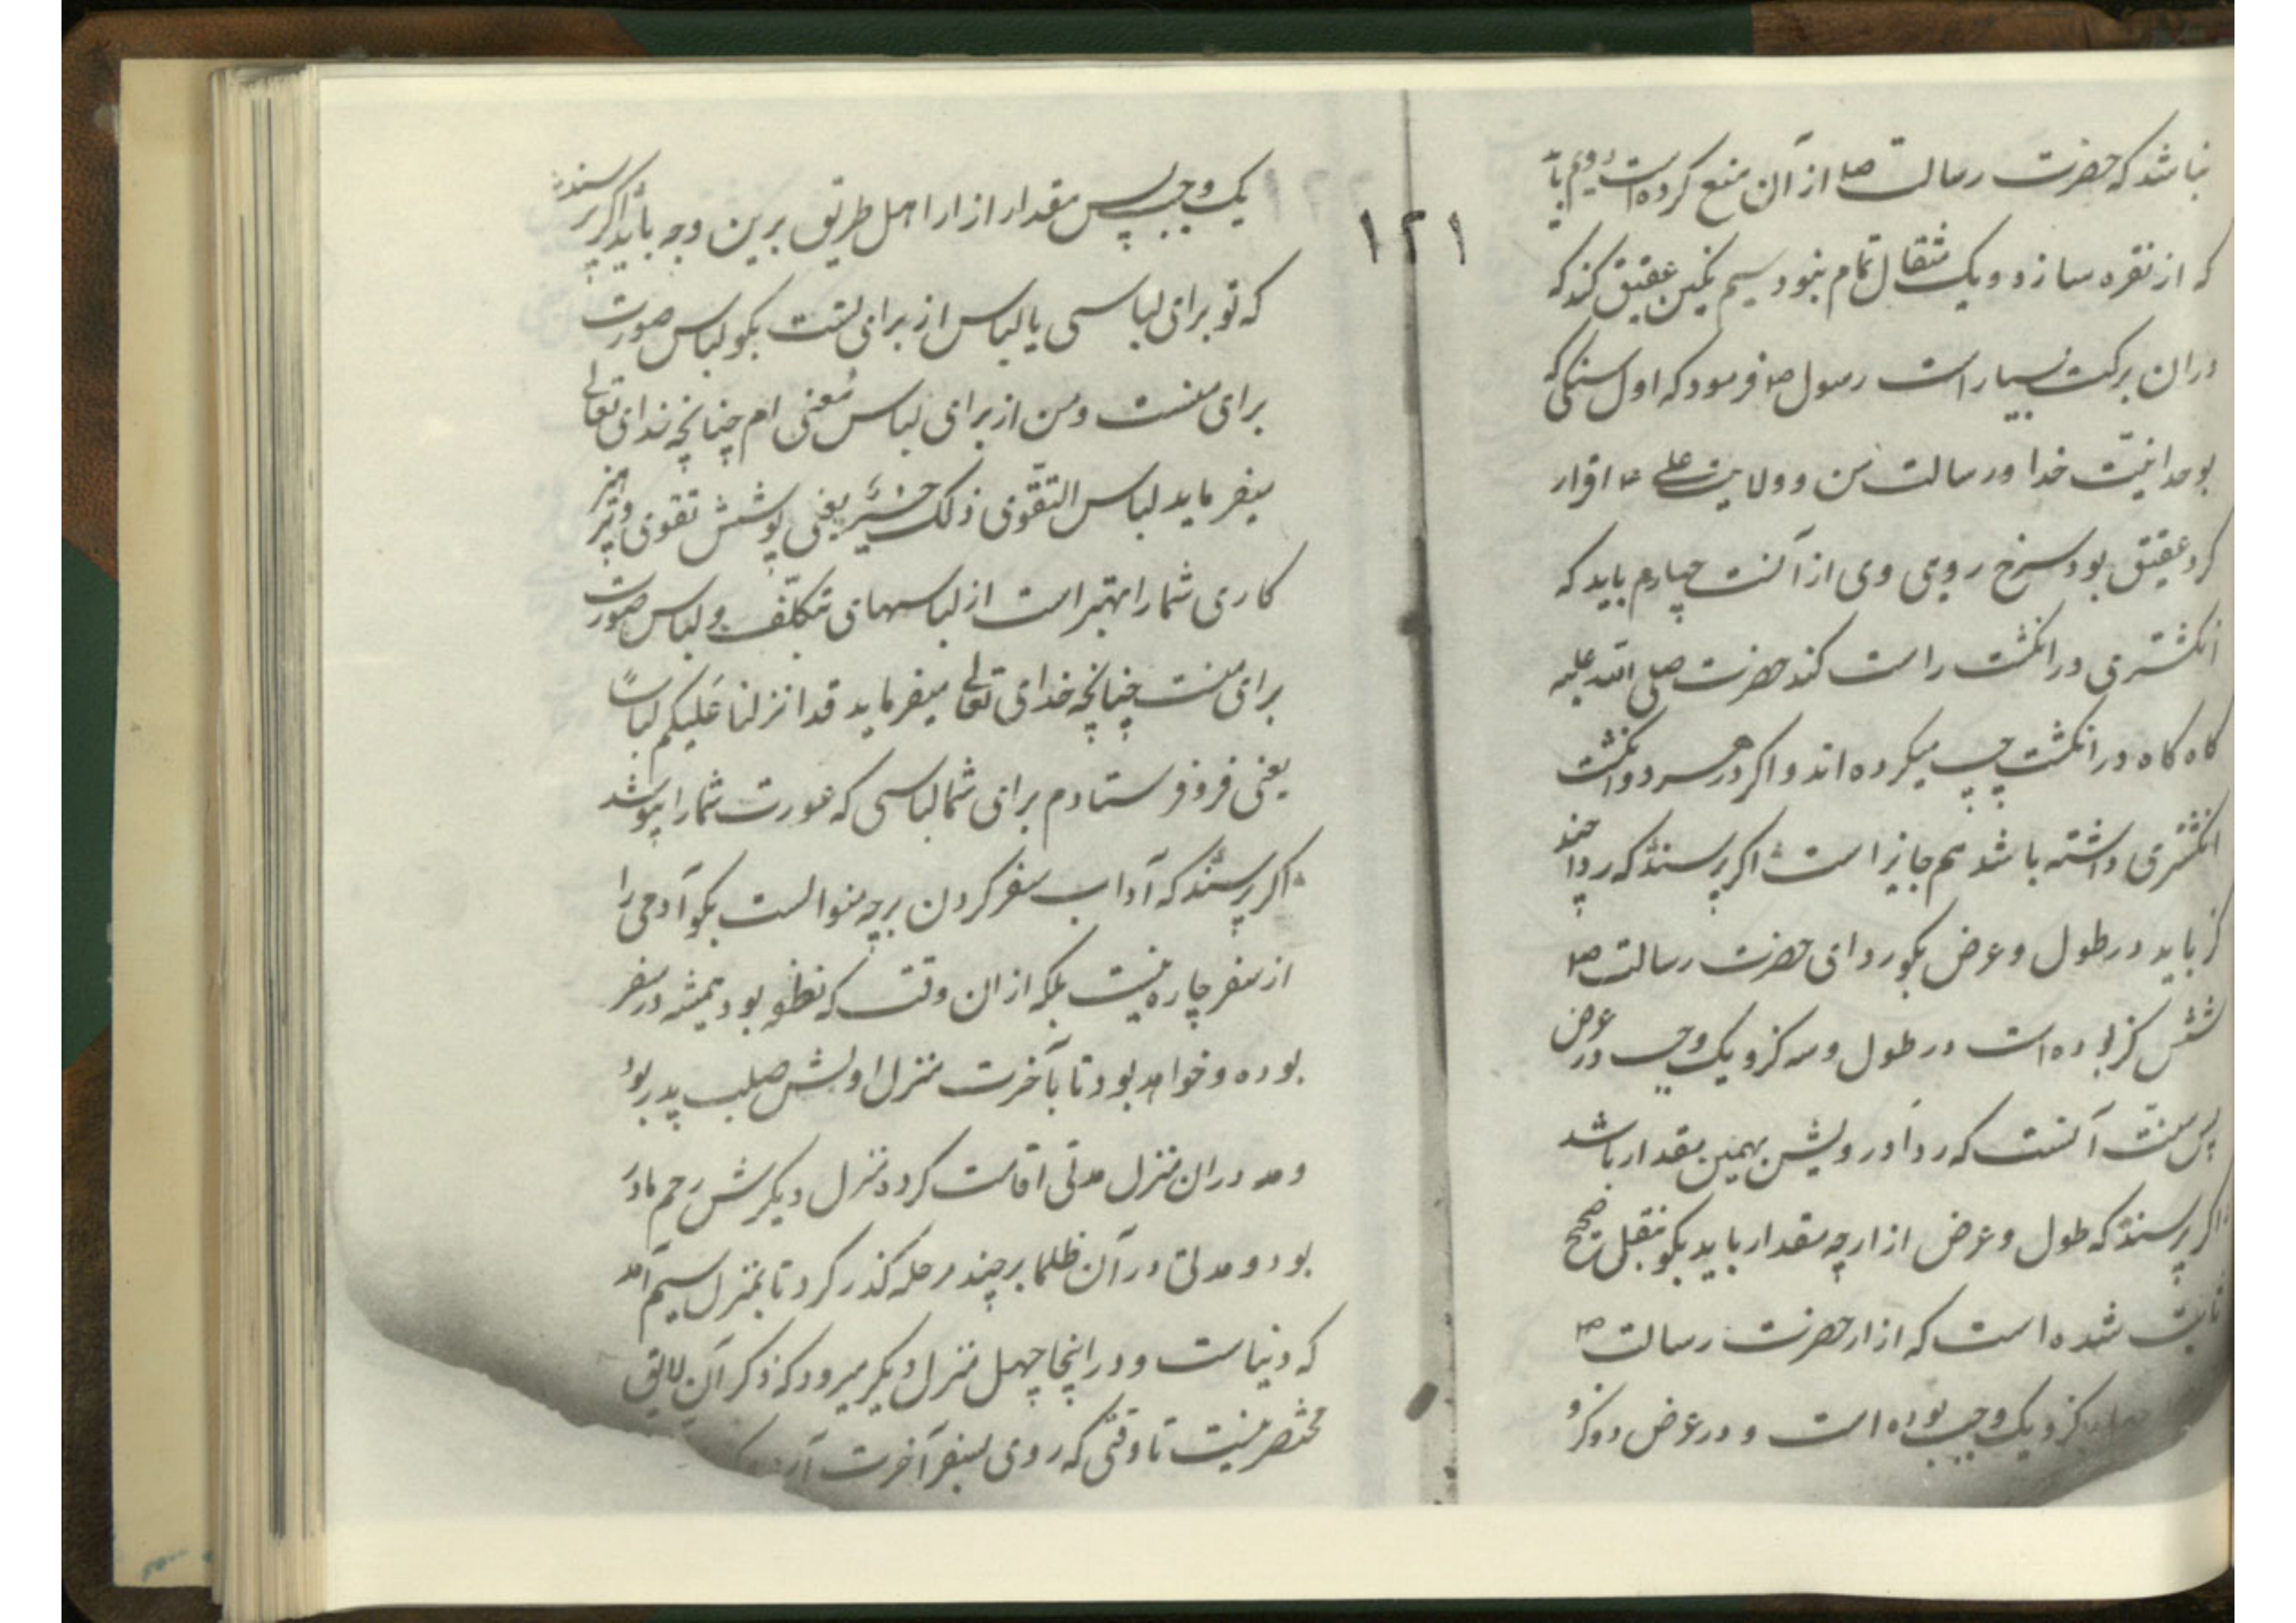 نباشد که حضرت رسالت ص از آن منع کرده است دویم باید
که از نقره سازد و یک مثقال تمام نبود سیم نکین عقیق کند که
دران برکت بسیار است رسول ص فرمود که اول سنکی که
بوحدانیّت خدا و رسالت من و ولایت علی ع اقرار
کرد عقیق بود سرخ رویی وی از آنست چهارم باید که
انکشتری در انکشت راست کند حضرت صلی الله علیه
کاه کاه در انکشت چپ میکرده اند و اکر در هر دو انکشت
انکشتری داشته باشد هم جایز است اکر پرسند که ردا چند
کز باید در طول و عرض بکو ردای حضرت رسالت ص
شش کز بوده است در طول و سه کز و یک وجب در عرض
پس سنّت آنست که رداء درویش بهمین مقدار باشد
اکر پرسند که طول و عرض ازار چه مقدار باید بکو بنقل صحیح
ثابت شده است که ازار حضرت رسالت ص
چهار کز و یک وجب بوده است و در عرض دو کز و
۱۲۱
یک وجب پس مقدار ازار اهل طریق برین وجه باید اکر پرسند
که تو برای لباسی یا لباس از برای تست بکو لباس صورت
برای منست و من از برای لباس معنی ام چنانچه خدای تعالی
میفرماید لباس التقوی ذلک خیر یعنی پوشش تقوی و پرهیز
کاری شما را بهتر است از لباسهای تکلّف و لباس صورت
برای منست چنانچه خدای تعالی میفرماید قد انزلنا علیکم لباساً
یعنی فرو فرستادم برای شما لباسی که عورت شما را بپوشد
اکر پرسند که آداب سفر کردن برچه منوالست بکو آدمی را
از سفر چاره نیست بلکه ازان وقت که نطفه بود همیشه در سفر
بوده و خواهد بود تا بآخرت منزل اولش صلب پدر بود
و دران منزل مدتی اقامت کرد منزل دیکرش رحم مادر
بود و مدتی در آن ظلما بر چند مرحله کذر کرد تا بمنزل سیم آمد
که دنیاست و در اینجا چهل منزل دیکر میرود که ذکر آن لایق
مختصر نیست تا وقتی که روی بسفر آخرت